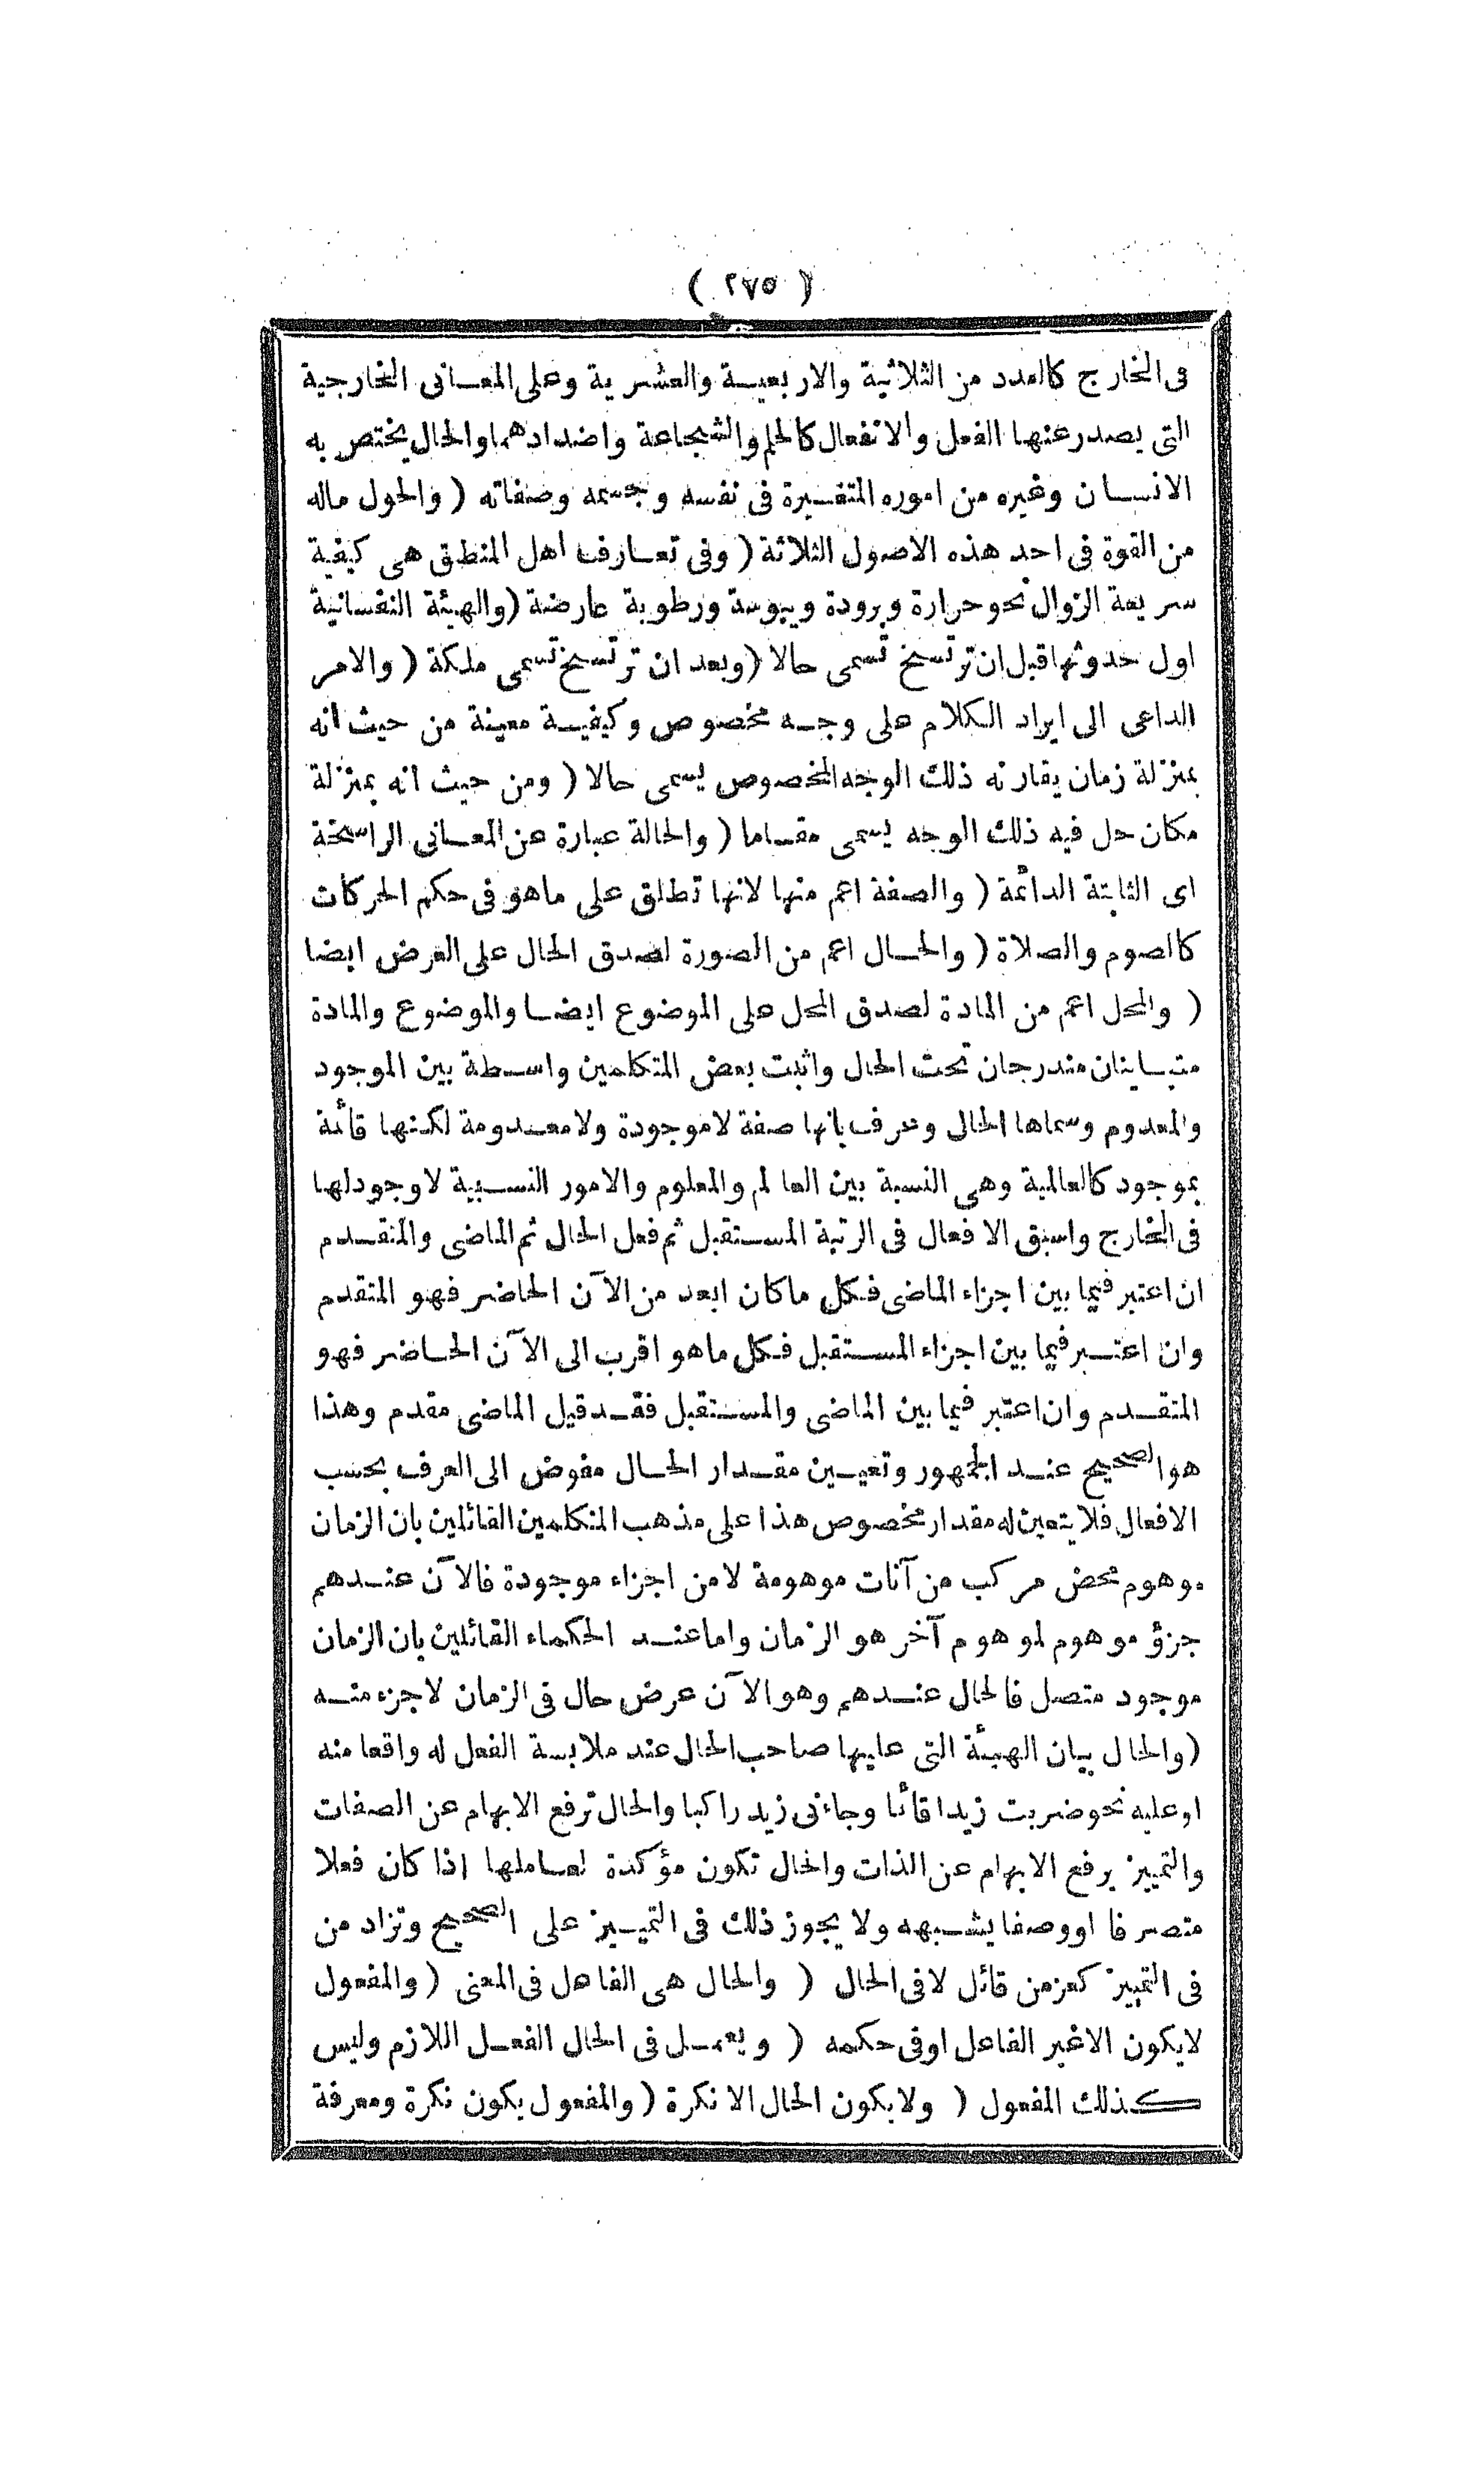 ( ٢٧٥ )
فى الخارج كالعدد من الثلاثية والاربعيـة والعشرية وعلى المعـانى الخارجية
التى يصدر عنها الفعل والانفعال كالحلم والشجاعة واضدادهما والحال يختص به
الانسان وغيره من اموره المتغيرة فى نفسه وجسمه وصفاته ( والحول ماله
من القوة فى احد هذه الاصول الثلاثة ( وفى تعـارف اهل المنطق هى كيفية
سريعة الزوال نحو حرارة وبرودة ويبوسة ورطوبة عارضة ( والهيئة النفسانية
اول حدوثها قبل ان ترتسخ تسمى حالا ( وبعد ان ترتسخ تسمى ملكة ( والامر
الداعى الى ايراد الكلام على وجـه مخصوص وكيفيـة معينة من حيث انه
بمنزلة زمان يقارنه ذلك الوجه المخصوص يسمى حالا ( ومن حيث انه بمنزلة
مكان حل فيه ذلك الوجه يسمى مقـاما ( والحالة عبارة عن المعـانى الراسخة
اى الثابتة الدائمة ( والصفة اعم منها لانها تطلق على ماهو فى حكم الحركات
كالصوم والصلاة ( والحـال اعم من الصورة لصدق الحال على العرض ايضا
( والمحل اعم من المادة لصدق المحل على الموضوع ايضـا والموضوع والمادة
متبـاينان مندرجان تحت الحال واثبت بعض المتكلمين واسـطة بين الموجود
والمعدوم وسماها الحال وعرف بانها صفة لا موجودة ولا معـدومة لكنها قائمة
بموجود كالعالمية وهى النسبة بين العالم والمعلوم والامور النسـبية لا وجود لها
فى الخارج واسبق الافعال فى الرتبة المسـتقبل ثم فعل الحال ثم الماضى والمتقـدم
ان اعتبر فيما بين اجزاء الماضى فـكل ماكان ابعد من الآن الحاضر فهو المتقدم
وان اعتـبر فيما بين اجزاء المسـتقبل فـكل ماهو اقرب الى الآن الحـاضر فهو
المتقـدم وان اعتبر فيما بين الماضى والمسـتقبل فقـد قيل الماضى مقدم وهذا
هو الصحيح عنـد الجمهور وتعيـين مقـدار الحـال مفوض الى العرف بحسب
الافعال فلا يتعين له مقدار مخصوص هذا على مذهب المتكلمين القائلين بان الزمان
موهوم محض مركب من آنات موهومة لامن اجزاء موجودة فالآن عنـدهم
جزؤ موهوم لموهوم آخر هو الزمان واما عنـد الحكماء القائلين بان الزمان
موجود متصل فالحال عنـدهم وهو الآن عرض حال فى الزمان لاجزء منـه
( والحال بيان الهيئة التى عليها صاحب الحال عند ملابسة الفعل له واقعا منه
او عليه نحو ضربت زيدا قائما وجاءنى زيد راكبا والحال ترفع الابهام عن الصفات
والتمييز يرفع الابهام عن الذات والحال تكون مؤكدة لعـاملها اذا كان فعلا
متصرفا او وصفا يشـبهه ولا يجوز ذلك فى التميـيز على الصحيح وتزاد من
فى التمييز كعز من قائل لا فى الحال ( والحال هى الفاعل فى المعنى ( والمفعول
لايكون الاغير الفاعل اوفى حكمه ( ويعمـل فى الحال الفعـل اللازم وليس
كـذلك المفعول ( ولايكون الحال الا نكرة ( والمفعول يكون نكرة ومعرفة